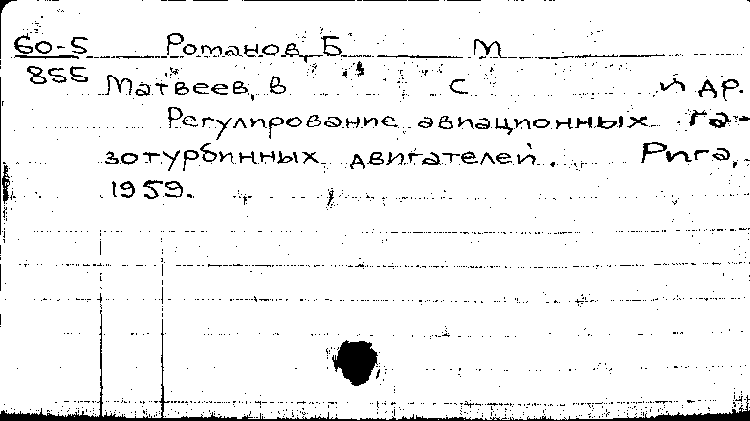 60-5 Романов, Б М
855 Матвеев, В С и др.
Регулирование авиационных га-
зотурбинных двигателей. Рига,
1959.